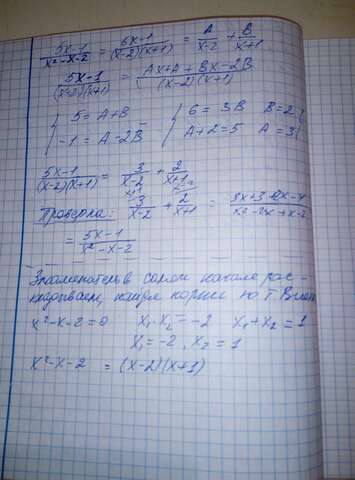 (5x-1)/(x²-x-2) = (5x-1)/((x-2)(x+1)) = A/(x-2) + B/(x+1)
(5x-1)/((x-2)(x+1)) = (Ax+A+Bx-2B)/((x-2)(x+1))
{ 5=A+B { 6=3B B=2
-1=A-2B A+2=5 A=3
(5x-1)/((x-2)(x+1)) = 3/(x-2) + 2/(x+1)
Проверка: 3/(x-2) + 2/(x+1) = (3x+3+2x-4)/(x²-2x+x-2)
= (5x-1)/(x²-x-2)
Знаменатель в самом начале рас-
кладываем, найдя корни по т. Виета
x²-x-2=0 x₁·x₂=-2 x₁+x₂=1
x₁=-2, x₂=1
x²-x-2 = (x-2)(x+1)